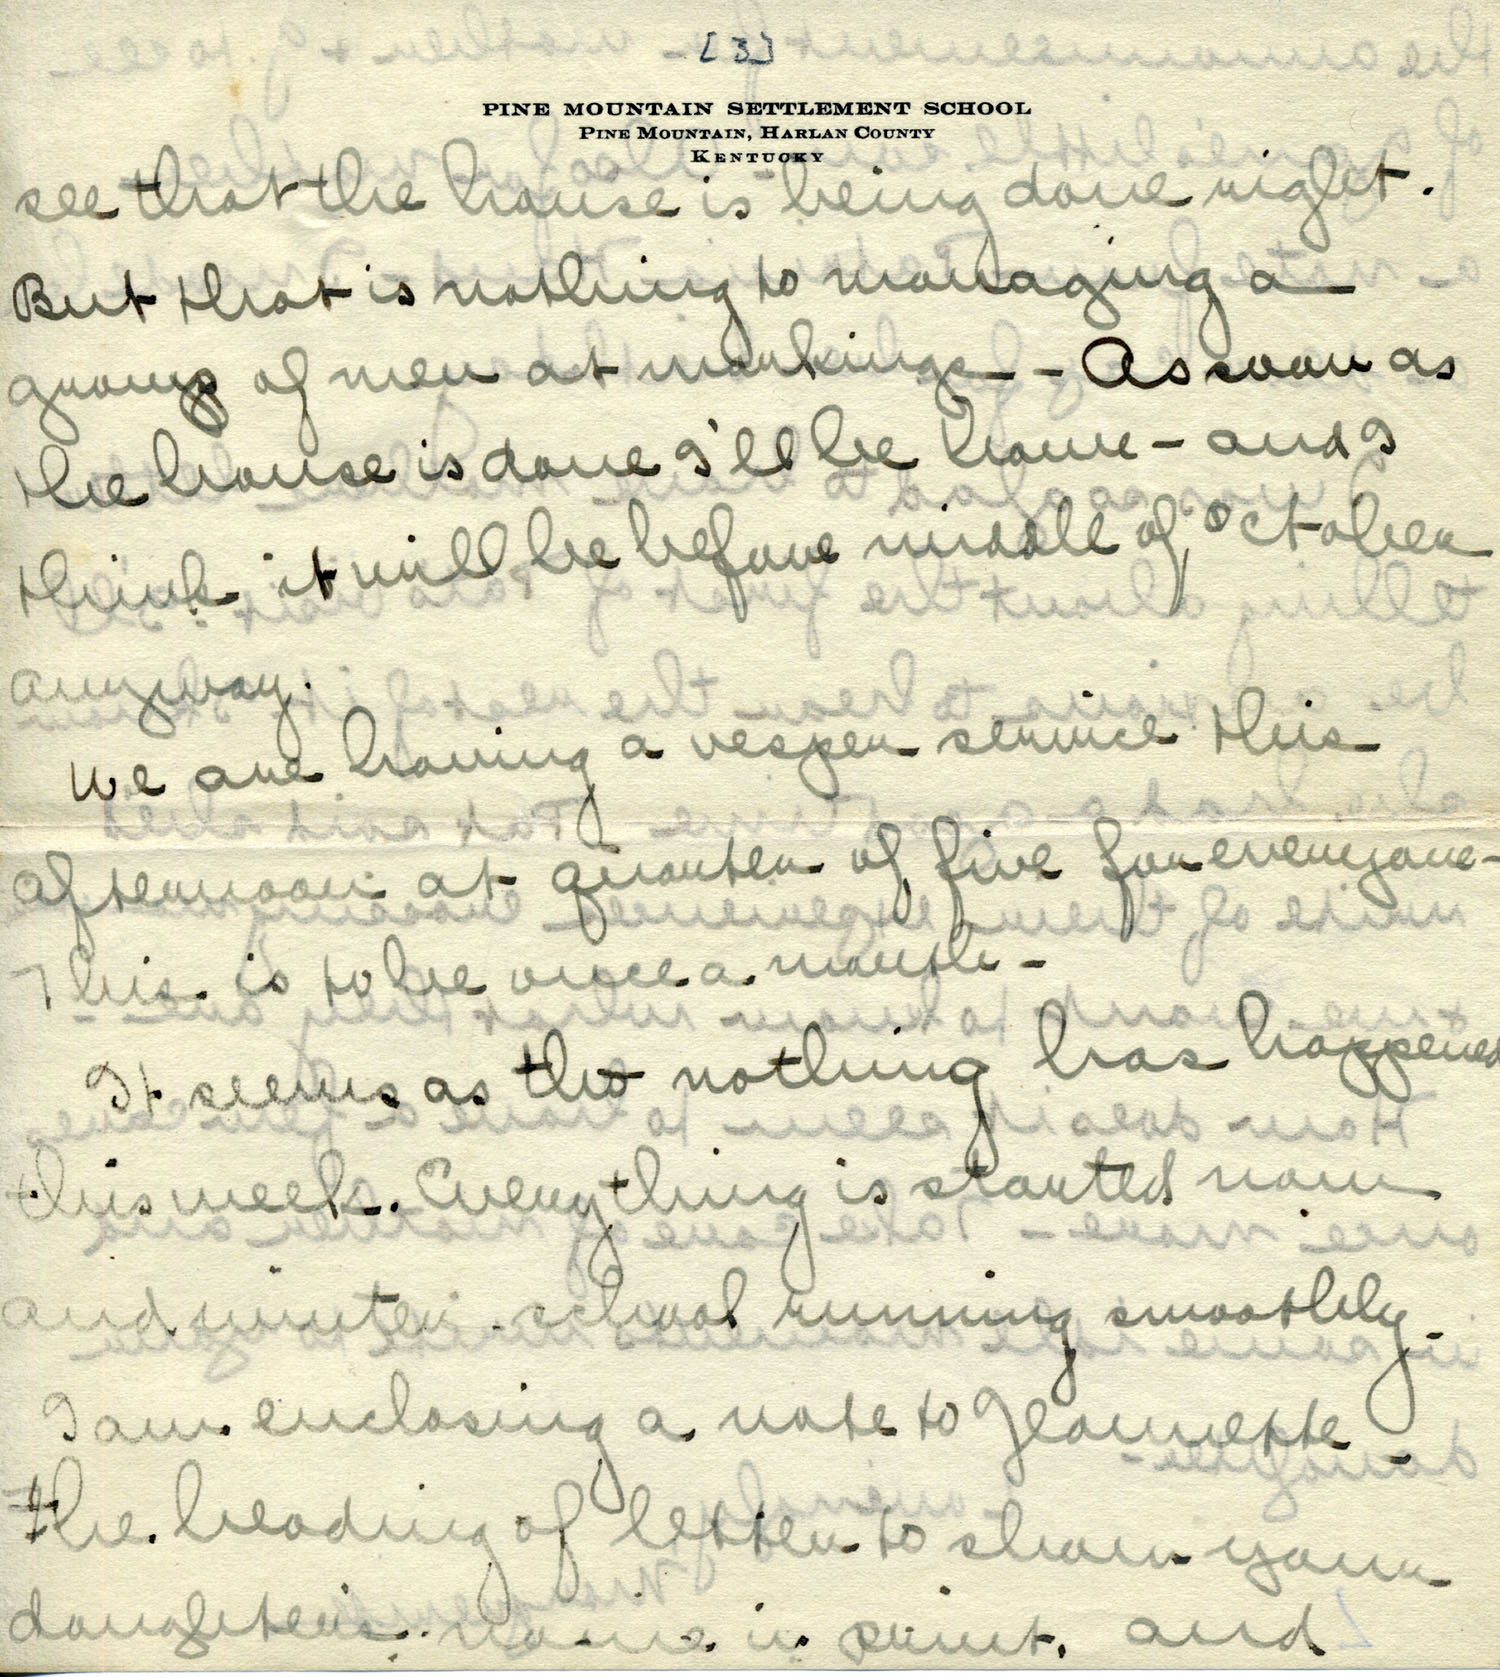 [3]
PINE MOUNTAIN SETTLEMENT SCHOOL
PINE MOUNTAIN, HARLAN COUNTY
KENTUCKY
see that the house is being done right.
But that is nothing to managing a
group of men at workings - - As soon as
the house is done I'll be home - and I
think it will be before middle of October
anyway.
We are having a vesper service this
afternoon at quarter of five for everyone -
This is to be once a month -
It seems as tho nothing has happened
this week. Everything is started now
and winter school running smoothly -
I am enclosing a note to Jeannette -
the heading of letter to show your
daughter's name in print, and